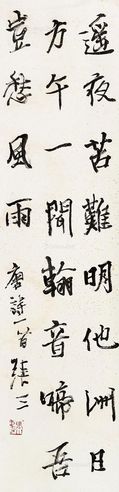 遥夜苦難明他洲日
方午一聞翰音啼吾
豈愁風雨
唐詩一首